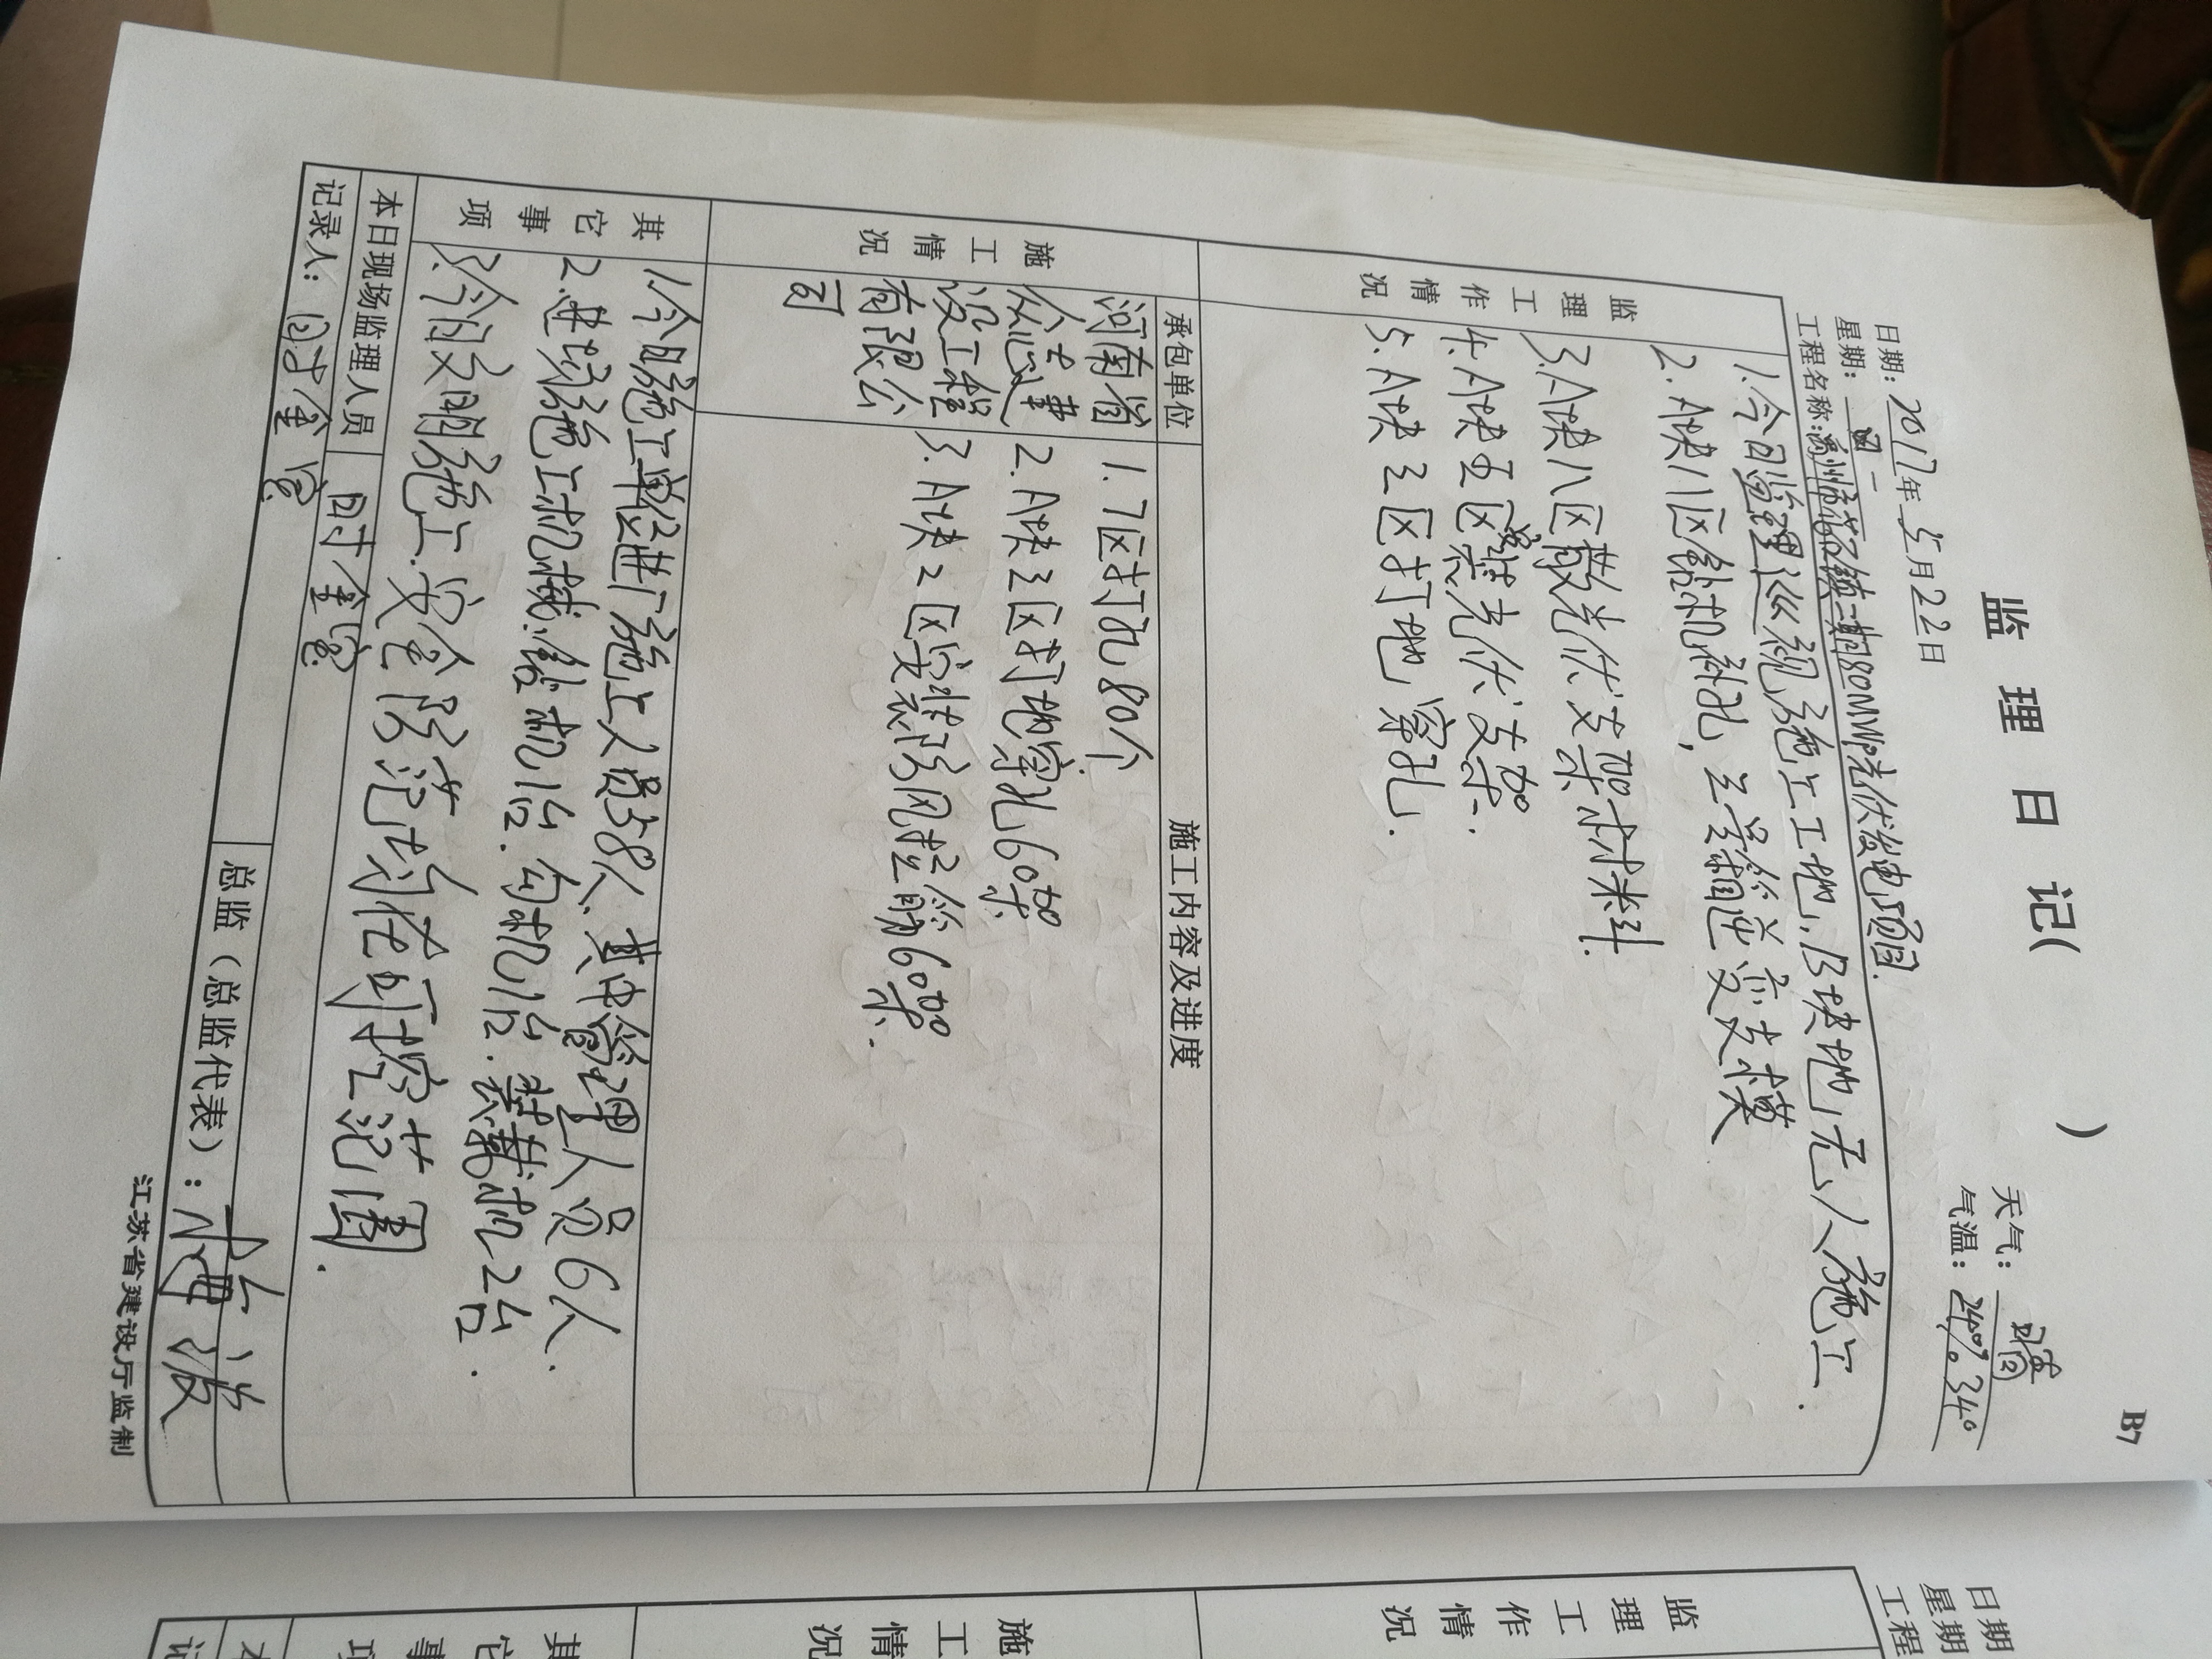 B7
监理日记( )
日期: 2017年5月22日 天气: 晴
星期: 一 气温: 24°~34°
工程名称: 禹州市花石镇二期80MWP光伏发电项目.
监理工作情况
1.今日监理巡视施工工地,B块地无人施工.
2.A块八区钻机钻孔,
3.A块八区散光伏支架材料.
4.A块五区 光伏支架.
5.A块三区打地窝孔.
施工情况
承包单位 施工内容及进度
河南省
众志建
设工程
有限公
司
1.7区打孔80个
2.A块三区打地窝孔60架
3.A块2区安装防风拉 60架.
其它事项
1.今日施工单位进厂施工人员58人.其中管理人员6人.
2.进场施工机械.钻机1台.勾机1台.装载机2台.
3.今日文明施工.安全防范均在可控范围.
本日现场监理人员 时金
记录人: 时金
总监(总监代表):
江苏省建设厅监制
日期
星期
工程
监理工作情况
施工情况
其它事项
本
记